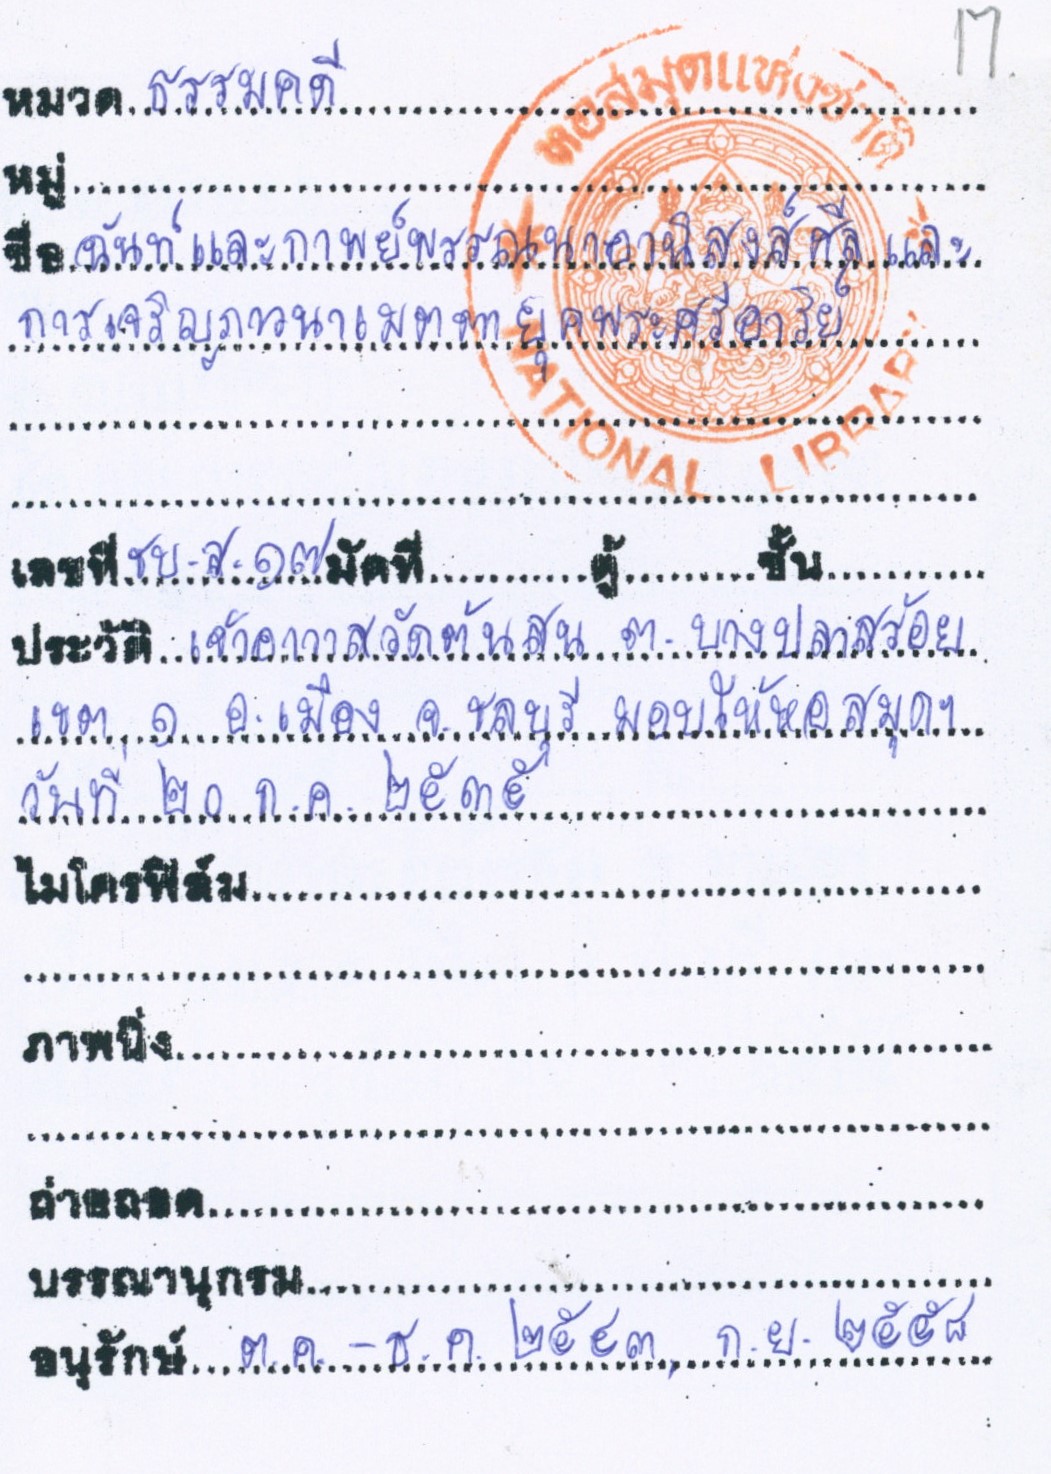 17
หอสมุดแห่งชาติ
NATIONAL LIBRARY
หมวด ธรรมคดี
หมู่
ชื่อ ฉันท์และกาพย์พรรณนาอานิสงส์ศีล และ
การเจริญภาวนาเมตตา ยุคพระศรีอาริย์
เลขที่ ชบ.ส.๑๗ มัดที่ ตู้ ชั้น
ประวัติ เจ้าอาวาสวัดต้นสน ต. บางปลาสร้อย
เขต ๑ อ.เมือง จ.ชลบุรี มอบให้หอสมุดฯ
วันที่ ๒๐ ก.ค. ๒๕๓๕
ไมโครฟิล์ม
ภาพนิ่ง
ถ่ายถอด
บรรณานุกรม
อนุรักษ์ ต.ค. - ธ.ค. ๒๕๔๓, ก.ย. ๒๕๕๘